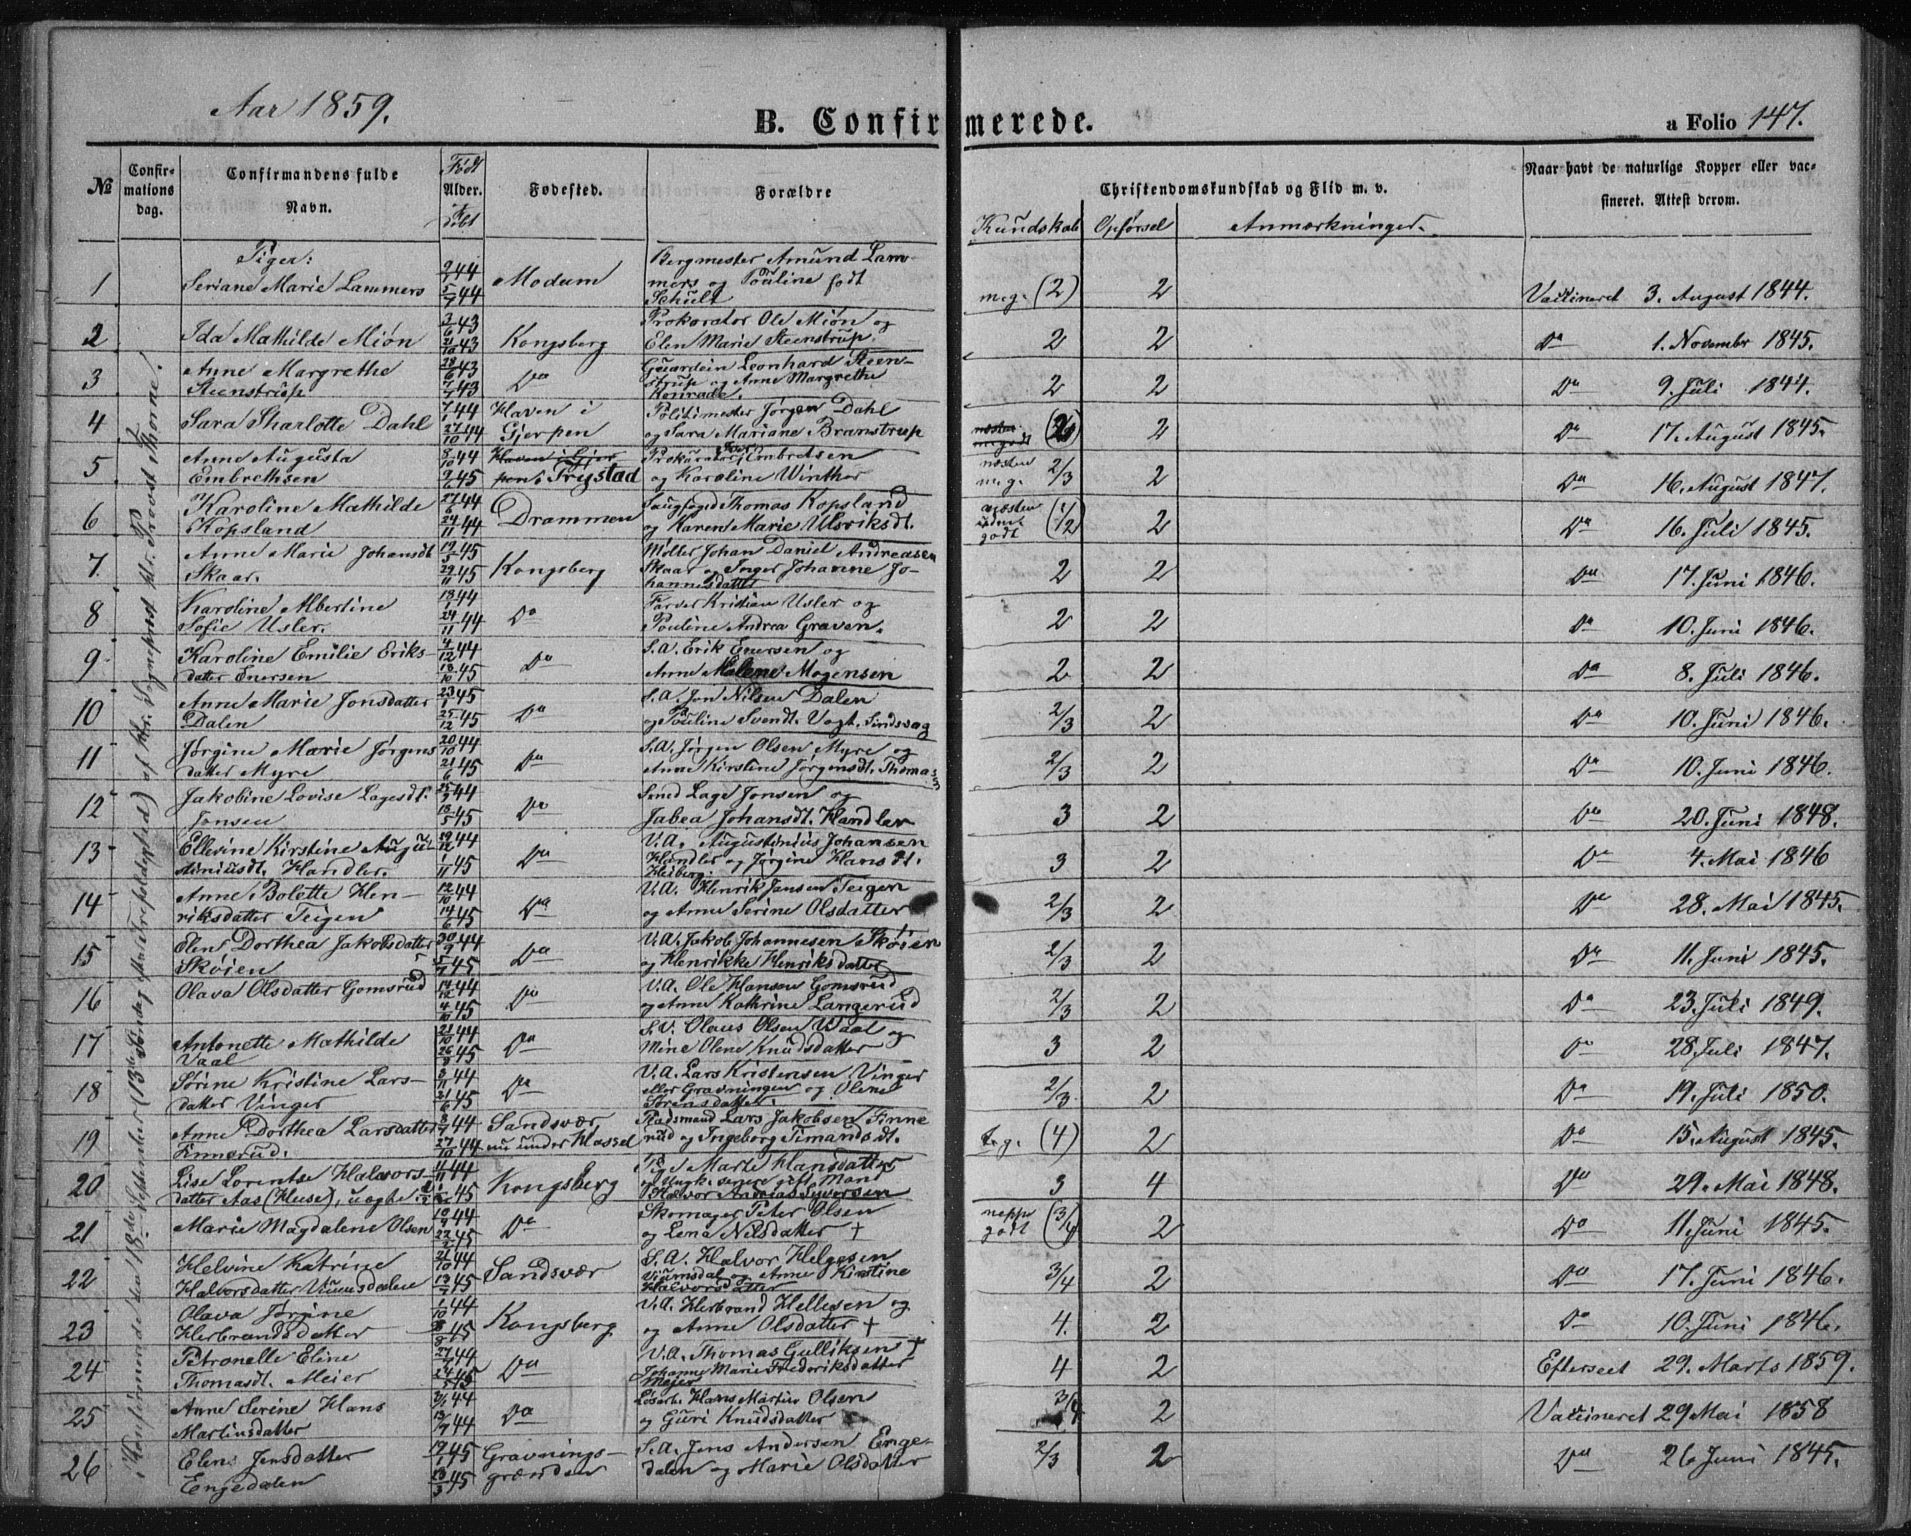 Aar 1859.
B. Confirmerede.
a Folio 147.
№
Confir-
mations
dag.
Confirmandens fulde
Navn.
Født
Alder.
Døbt
Fødested.
Forældre
Christendomskundskab og Flid m. v.
Kundskab
Opførsel
Anmærkninger.
Naar havt de naturlige Kopper eller vac-
sineret. Attest derom.
Konfirmerede den 18de September (13de Søndag efter Trefoldighed) af Hr. Sogneprest Hr. Provst Thorne.
Piger:
1 Seriane Marie Lammers 5/7 44 Modum Bergmester Amund Lam-
mers og Pouline født
Schult m.g. (2) 2 Vaccineret 3. August 1844.
2 Ida Mathilde Miøn 3/6 43 21/10 43 Kongsberg Prokurator Ole Miøn og
Elen Marie Steenstrup. 2 2 Do 1. November 1845.
3 Anne Margrethe
Steenstrup 28/6 43 43 Do Guardein Leonhard Steen-
strup og Anne Margrethe
Konrade. 2 2 Do 9. Juli 1844.
4 Sara Sharlotte Dahl 44 27/10 44 Haven i
Gjerpen Politimester Jørgen Dahl
og Sara Mariane Branstrup 2 Do 17. August 1845.
5 Anne Augusta
Embrethsen 8/10 44 45 Frystad Prokurator Embretsen
og Karoline Winther næsten
m.g. 2/3 2 Do 16. August 1847.
6 Karoline Mathilde
Kopsland 27/6 44 24/11 44 Drammen Thomas Kopsland
og Karen Marie Ulsriksdt. næsten
udm.
godt (1/2) 2 Do 16. Juli 1845.
7. Anne Marie Johansdt
Skaar. 19/5 45 29/11 45 Kongsberg Møller Johan Daniel Andreasen
Skaar og Inger Johanne Jo-
hannesdatter 2 2 Do 17. Juni 1846.
8 Karoline Albertine
Sofie Usler. 18/1 44 24/11 44 Do Farver Kristian Usler og
Pouline Andrea Graven. 2 2 Do 10. Juni 1846.
9 Karoline Emilie Eriks-
datter Enersen 44 18/10 45 Do S.A. Erik Enersen og
Anne Malene Mogensen 2 2 Do 8. Juli 1846.
10 Anne Marie Jonsdatter
Dalen 23/1 45 25/12 45 Do S.A. Jon Nilsen Dalen
og Pouline Svendt. Vogt. Sindsvag 2/3 2 Do 10. Juni 1846.
11 Jørgine Marie Jørgens
datter Myre 20/10 44 21/6 45 Do S.A. Jørgen Olsen Myre og
Anne Kirstine Jørgensdt. Thomas 2/3 2 Do 10. Juni 1846.
12 Jakobine Lovise Lagesdt.
Jonsen 44 18/5 45 Do Smed Lage Jonsen og
Jabea Johansdt. Handler 3 2 Do 20. Juni 1848.
13 Ellevine Kirstine Augu-
stiniusdt. Handler. 29/12 44 1/11 45 Do V.A. Augustinius Johansen
Handler og Jørgine Hansdt.
Heiberg. 3 2 Do 4. Mai 1846
14 Anne Bolette Hen-
riksdatter Teigen 12/10 44 14/6 45 Do V.A. Henrik Jansen Teigen
og Anne Serine Olsdatter 2/3 2 Do 28. Mai 1845.
15 Elen Dorthea Jakobsdatter
Skøien 30/9 44 45 Do V.A. Jakob Johannesen Skøien
og Henrikke Henriksdatter 2/3 2 Do 11. Juni 1845.
16 Olava Olsdatter Gomsrud 44 4/10 45 Do V.A. Ole Hansen Gomsrud
og Anne Kathrine Langerud 2/3 2 Do 23. Juli 1849.
17 Antonette Mathilde
Vaal 21/10 44 26/8 45 Do S.V. Olaus Olsen Vaal og
Mine Olene Knudsdatter 3 2 Do 28. Juli 1847.
18 Sørine Kristine Lars-
datter Vinger 44 21/6 45 Do V.A. Lars Kristensen Vinger
eller Gravningen og Olene
Sørensdatter. 2/3 2 Do 19. Juli 1850.
19 Anne Dorthea Larsdatter
Finnerud. 44 27/10 44 Sandsvær
nu under Hassel Pladsmand Lars Jakobsen Finne
rud og Ingeborg Simandsdt. t.g. (4) 2 Do 15. August 1845.
20 Lise Lorentse Halvors-
datter Aas (Huse), uægte 44 45 Kongsberg Pige Marte Hansdatter
og Ungk. senere gift Mand
Halvor Andreas Syversen 3 4 Do 29. Mai 1848.
21 Marie Magdalene Olsen 10/9 44 45 Do Skomager Peter Olsen
og Lena Nilsdatter + neppe
godt (3/4) 2 Do 11. Juni 1845.
22 Helvine Katrine
Halvorsdatter Viumsdalen 21/10 44 45 Sandsvær S.A. Halvor Helgesen
Viumsdal og Anne Kirstine
Halvorsdatter 3/4 2 Do 17. Juni 1846.
23 Olava Jørgine
Herbrandsdatter 1/10 44 45 Kongsberg V.A. Herbrand Hellesen og
og Anne Olsdatter + 4. 2 Do 10. Juni 1846.
24 Petronelle Eline
Thomasdt. Meier 44 45 Do V.A. Thomas Gulliksen +
Johanne Marie Frederiksdatter
Mejer 4 2 Efterseet 29. Marts 1859.
25 Anne Serine Hans
Martinsdatter 44 44 Do Løsarb. Hans Martin Olsen
og Guri Knudsdatter 3/4 2 Vaccineret 29 Mai 1858
26 Elen Jensdatter
Engedalen 19/1 45 13/3 45 Gravnings-
grænden S.A. Jens Andersen Enge-
dalen og Marie Olsdatter 2/3 2 Do 26. Juni 1845.